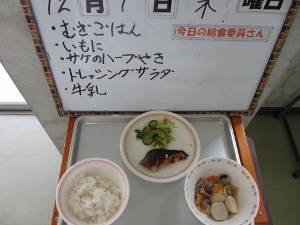 12月7日木曜日
今日の給食委員さん
・むぎごはん
・いもに
・サケのハーブやき
・ドレッシングサラダ
・牛乳